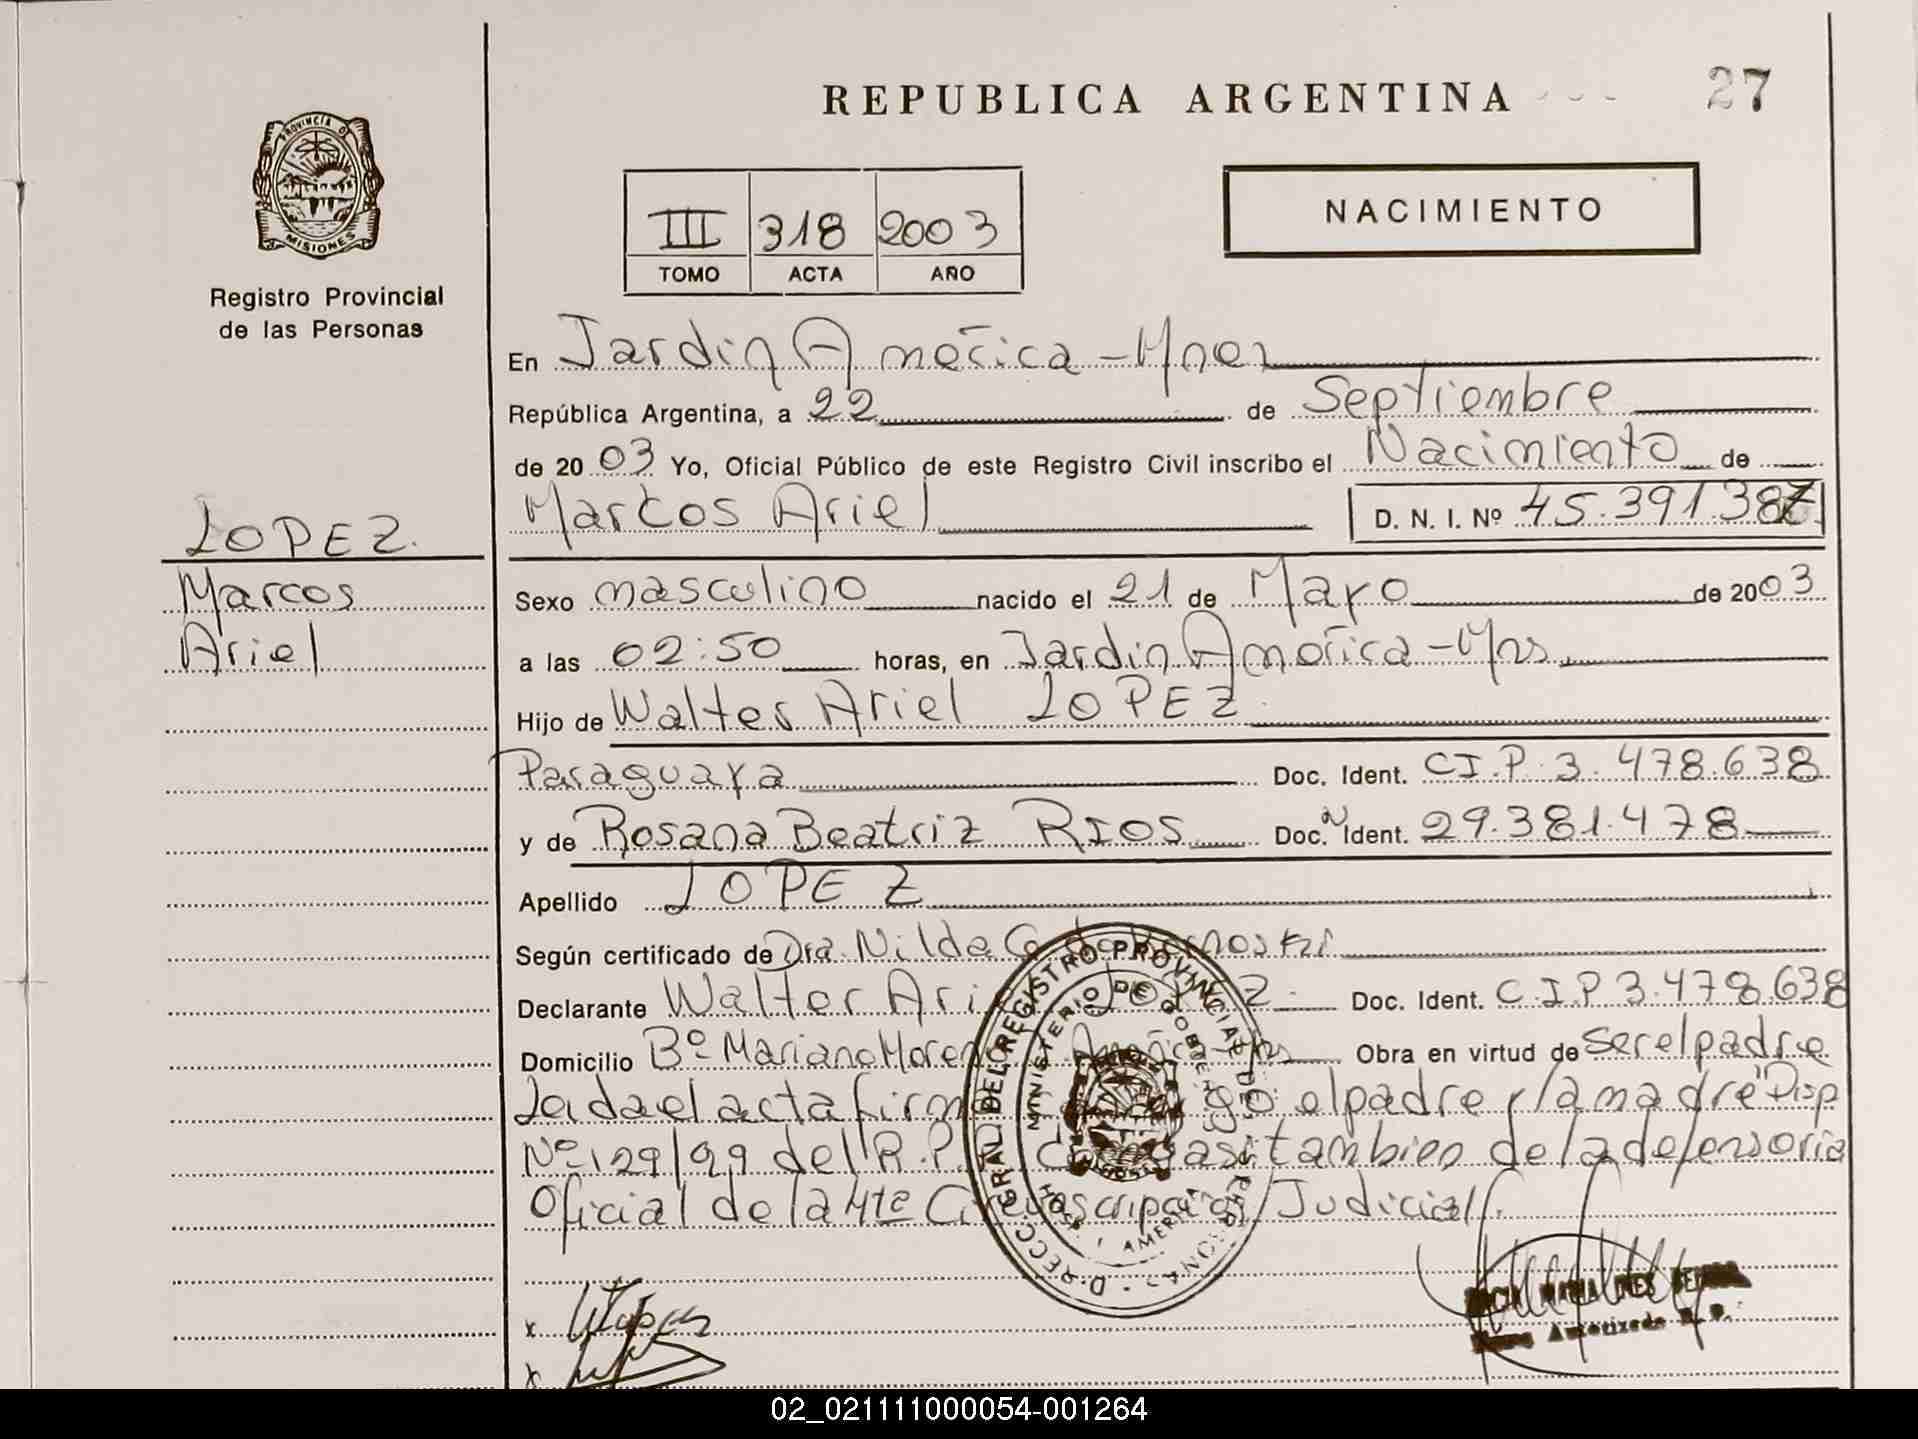 REPUBLICA ARGENTINA
27
PROVINCIA DE
MISIONES
Registro Provincial
de las Personas
III 318 2003
TOMO ACTA AÑO
NACIMIENTO
En Jardin América - Mnes
República Argentina, a 22 de Septiembre
de 2003 Yo, Oficial Público de este Registro Civil inscribo el Nacimiento de
Marcos Ariel D. N. I. Nº 45.391.387
LOPEZ.
Marcos
Ariel
Sexo masculino nacido el 21 de Mayo de 2003
a las 02:50 horas, en Jardin América - Mns.
Hijo de Walter Ariel LOPEZ.
Paraguaya Doc. Ident. CI.P. 3.478.638
y de Rosana Beatriz RIOS Doc. Ident. 29.381.478
Apellido LOPEZ
Según certificado de Dra. Nilda
Declarante Walter Ari LOPEZ. Doc. Ident. C.I.P 3.478.638
Domicilio Bº Mariano Moren América - Mns Obra en virtud de ser el padre
Leida el acta firm go el padre y la madre "Disp
Nº 129/99 del R.P. asi tambien de la defensoria
Oficial de la 4ta Circunscripción Judicial.
DIRECC. GRAL. DEL REGISTRO PROVINCIAL DE LAS PERSONAS
MINISTERIO DE GOBIERNO
AMERICA
x
x
MARIA INES
Autorizada
02_021111000054-001264